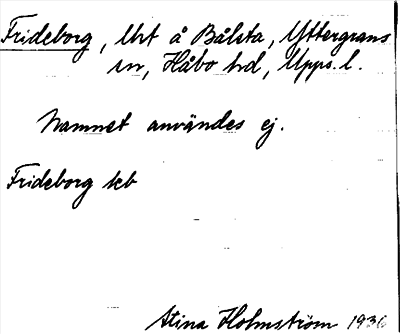 Frideborg, Urt å Bålsta, Yttergrans
sn, Håbo hd, Upps. l.
Namnet användes ej.
Frideborg kb
Stina Holmström 1936